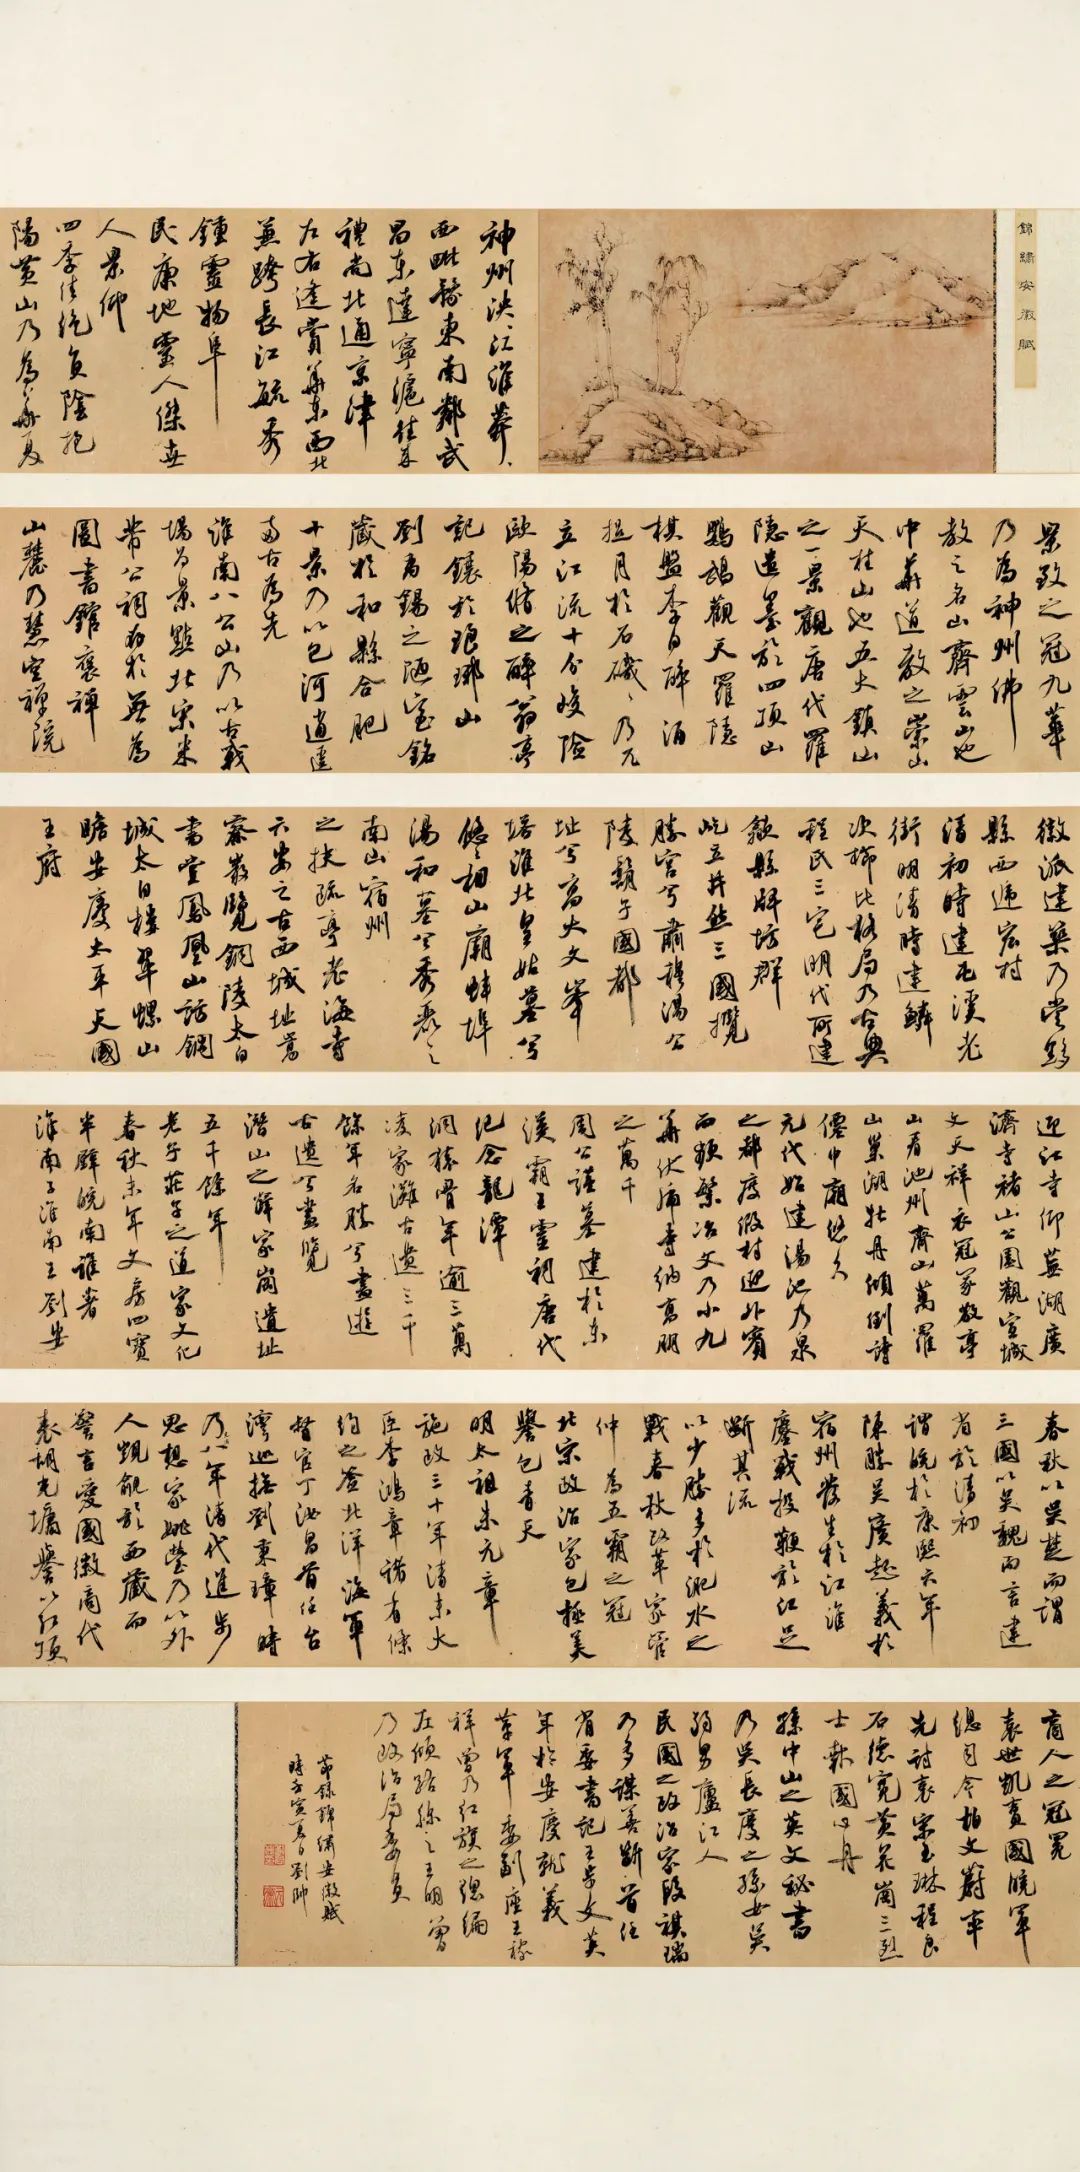 錦繡安徽賦
神州泱泱江淮莽莽
西毗豫東南鄰武
昌東達寧滬
禮尚北通京津
左右逢賞華東西北
兼跨長江毓秀
鍾靈物阜
民康地靈人傑世
人景仰
四季佳绝負陰抱
陽黃山乃為華夏
景致之冠九華
乃為神州佛
教之名山齊雲山也
中華道教之崇山
天柱山也五大鎮山
之一景觀唐代羅
隱遺墨於四頂山
鸚鵡觀天羅隱
棋盤李白醉酒
捉月於石磯磯乃兀
立江流十分峻險
歐陽脩之醉翁亭
記鑲於琅琊山
劉禹錫之陋室銘
藏於和縣合肥
十景乃以包河逍遙
兩古為先
淮南八公山乃以古戰
場為景點北宋米
芾公祠府於無為
圖書館褒禪
山麓乃慧空禪院
徽派建築乃當黟
縣西遞宏村
清初時建屯溪老
街明清時建鱗
次櫛比格局乃古典
程氏三宅明代所建
歙縣牌坊群
屹立井然三國攬
勝宮兮肅穆湯公
陵鬍子國都
址兮高大文峯
塔淮北皇姑墓兮
悠悠相山廟蚌埠
湯和墓兮秀麗之
南山宿州
之扶疏亭老海寺
六安之古西城址
寮嚴覽銅陵太白
書堂鳳凰山訪銅
城太白樓翠螺山
瞻安慶太平天國
王府
迎江寺仰蕪湖廣
濟寺褚山公園觀宣城
文天祥衣冠冢敬亭
山看池州齊山萬羅
山巢湖牡丹傾倒詩
僊中廟悠久
元代始建湯池乃泉
之都度假村迎外賓
而頻繁冶父乃小九
華伏虎寺納高朋
之萬千
周公瑾墓建於東
漢霸王靈祠唐代
紀念龍潭
洞猿骨年逾三萬
凌家灘古遺三千
餘年名勝兮盡遊
古遺兮盡覽
潛山之薛家崗遺址
五千餘年
老子莊子之道家文化
春秋末年文房四寶
半壁皖南誰著
淮南子淮南王劉安
春秋以吳楚而謂
三國以吳魏而言建
省於清初
謂皖於康熙六年
陳勝吳廣起義於
宿州發生於江淮
鏖戰投鞭於江足
斷其流
以少勝多於淝水之
戰春秋改革家管
仲為五霸之冠
北宋政治家包拯美
譽包青天
明太祖朱元章
施政三十年清末大
臣李鴻章諸者條
約之簽北洋海軍
督官丁汝昌首任台
灣巡撫劉東璋時
乃八年清代進步
思想家姚瑩乃以外
人覬覦於西藏而
警言愛國徽商代
表胡光墉譽以紅頂
商人之冠冕
袁世凱賣國皖軍
總司令柏文蔚率
先討袁宋玉琳程良
石德寬黃花崗三烈
士赤國心丹
孫中山之英文秘書
乃吳長慶之孫女吳
弱男廬江人
民國之政治家段祺瑞
乃多謀善斷首任
省委書記王步文英
年於安慶就義
革軍委副座王稼
祥曾乃紅旗之總編
左傾路綫之王明曾
乃政治局委員
節錄錦繡安徽賦
時壬寅夏日劉帥